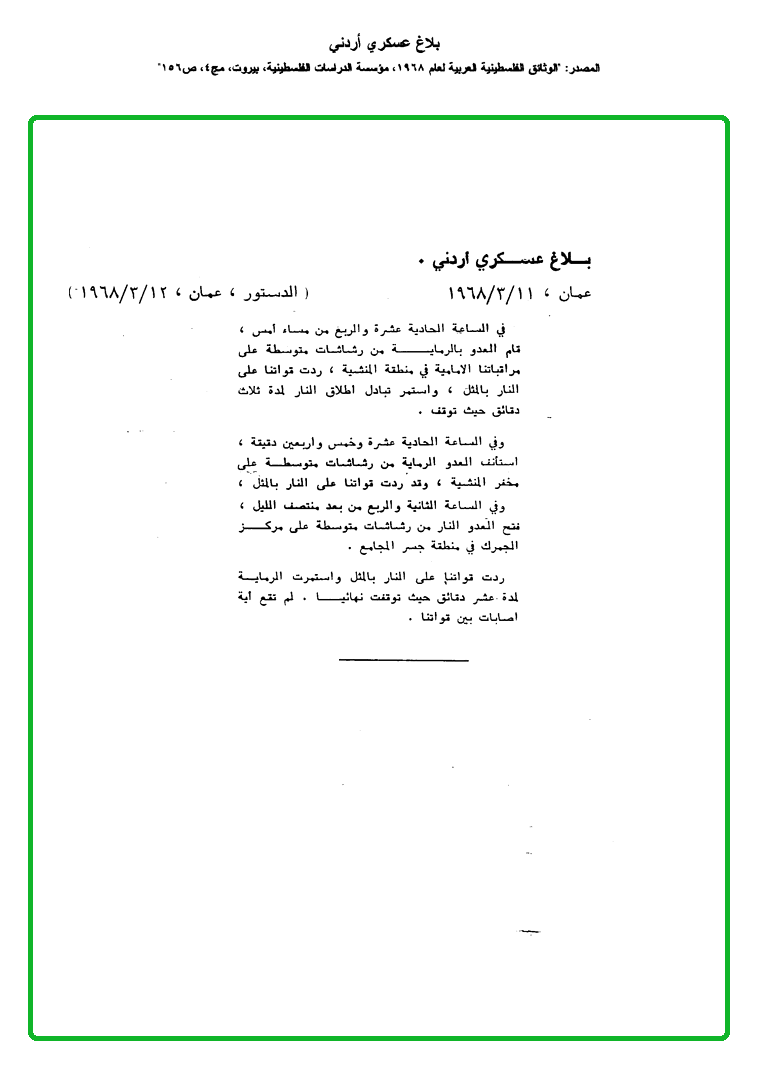 بلاغ عسكري أردني
المصدر: "الوثائق الفلسطينية العربية لعام ١٩٦٨، مؤسسة الدراسات الفلسطينية، بيروت، مج٤، ص١٥٦"
بـــلاغ عســـكري أردني .
عمان ، ١٩٦٨/٣/١١ ( الدستور ، عمان ، ١٩٦٨/٣/١٢ )
في الساعة الحادية عشرة والربع من مساء أمس ،
قام العدو بالرمايـــــة من رشاشات متوسطة على
مراقباتنا الامامية في منطقة المنشية ، ردت قواتنا على
النار بالمثل ، واستمر تبادل اطلاق النار لمدة ثلاث
دقائق حيث توقف .
وفي الساعة الحادية عشرة وخمس واربعين دقيقة ،
استأنف العدو الرماية من رشاشات متوسطـة على
مخفر المنشية ، وقد ردت قواتنا على النار بالمثل ،
وفي الساعة الثانية والربع من بعد منتصف الليل ،
فتح العدو النار من رشاشات متوسطة على مركـــز
الجمرك في منطقة جسر المجامع .
ردت قواتنا على النار بالمثل واستمرت الرمايـة
لمدة عشر دقائق حيث توقفت نهائيـــا . لم تقع أية
اصابات بين قواتنا .